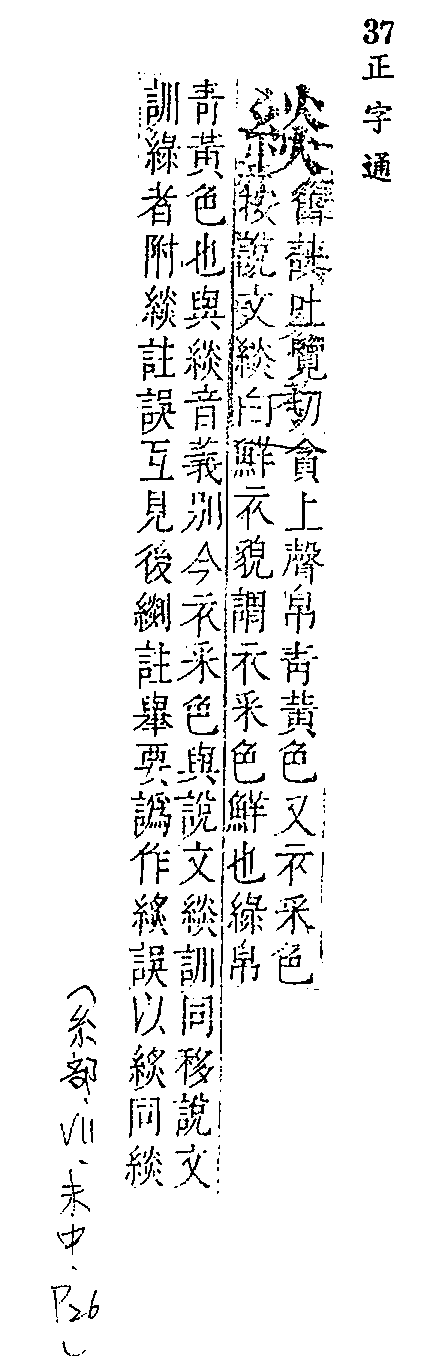 37正字通
緂
舊註吐覽切貪上聲帛青黃色又衣采色
按說文緂白鮮衣貌謂衣采色鮮也綠帛
青黃色也與緂音義別今衣采色與說文緂訓同移說文
訓綠者附緂註誤互見後註舉要譌作誤以同緂
(糸部·VII、未中·P26)